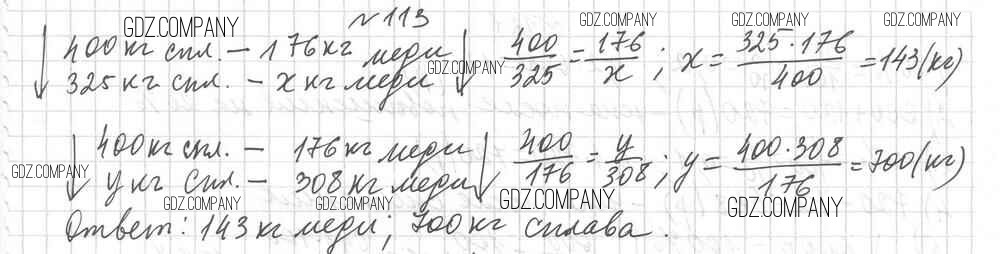 № 113
400 кг спл. – 176 кг меди 400/325 = 176/x ; x = 325·176/400 = 143 (кг)
325 кг спл. – x кг меди
400 кг спл. – 176 кг меди 400/176 = y/308 ; y = 400·308/176 = 700 (кг)
y кг спл. – 308 кг меди
Ответ: 143 кг меди; 700 кг сплава.
GDZ.COMPANY
GDZ.COMPANY
GDZ.COMPANY
GDZ.COMPANY
GDZ.COMPANY
GDZ.COMPANY
GDZ.COMPANY
GDZ.COMPANY
GDZ.COMPANY
GDZ.COMPANY